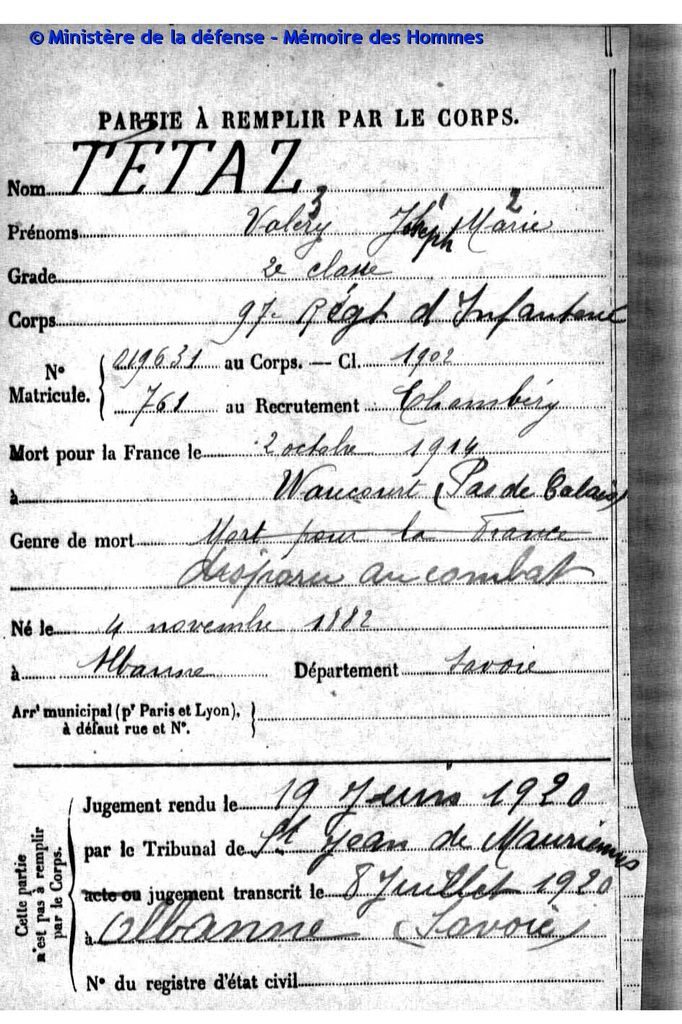 © Ministère de la défense - Mémoire des Hommes
PARTIE À REMPLIR PAR LE CORPS.
Nom TÉTAZ
Prénoms Valéry 3 Joseph 1 Marie 2
Grade 2e classe
Corps 97e Régt d'Infanterie
N° Matricule. { 019631 au Corps. — Cl. 1902
761 au Recrutement Chambéry
Mort pour la France le 2 octobre 1914
à Wancourt (Pas de Calais)
Genre de mort Mort pour la France
disparu au combat
Né le 4 novembre 1882
à Albanne Département Savoie
Arrt municipal (pr Paris et Lyon), à défaut rue et N°. }
Cette partie n'est pas à remplir par le Corps. {
Jugement rendu le 19 Juin 1920
par le Tribunal de St Jean de Maurienne
acte ou jugement transcrit le 8 Juillet 1920
à Albanne (Savoie)
N° du registre d'état civil